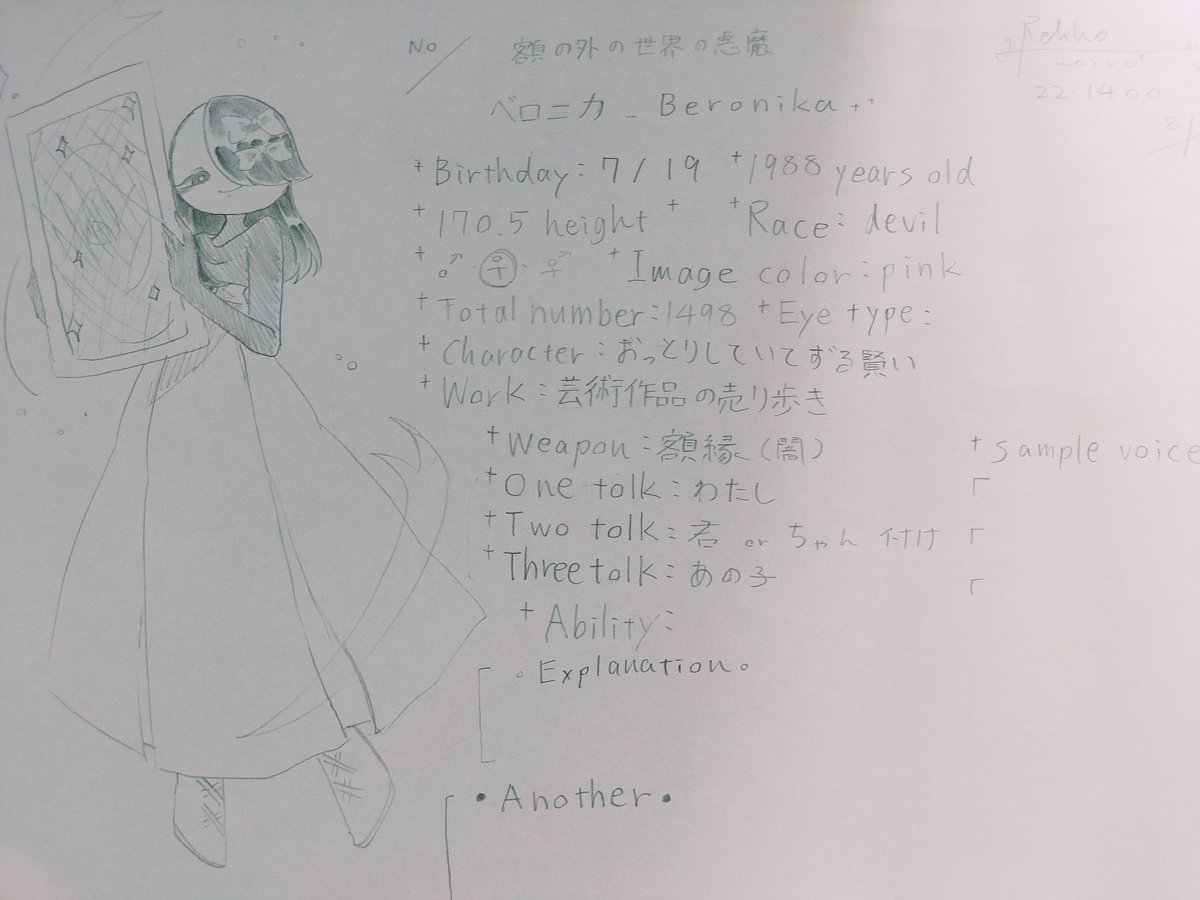 No/ 額の外の世界の悪魔
ベロニカ _ Beronika
+Birthday: 7/19 +1988 years old
+170.5 height + +Race: devil
+♂・♀・⚥ +Image color: pink
+Total number: 1498 +Eye type:
+Character: おっとりしていてずる賢い
+Work: 芸術作品の売り歩き
+Weapon: 額縁(闇)
+One tolk: わたし
+Two tolk: 君 or ちゃん 付け
+Three tolk: あの子
+Ability:
。Explanation。
・Another・
+sample voice
「
「
「
22.1400